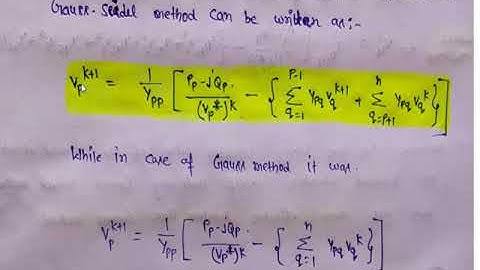 Gauss-Seidel method can be written as:-
V_p^{k+1} = \frac{1}{Y_{pp}} \left[ \frac{P_p - jQ_p}{(V_p^*)^k} - \left\{ \sum_{q=1}^{p-1} Y_{pq} V_q^{k+1} + \sum_{q=p+1}^{n} Y_{pq} V_q^k \right\} \right]
While in case of Gauss method it was.
V_p^{k+1} = \frac{1}{Y_{pp}} \left[ \frac{P_p - jQ_p}{(V_p^*)^k} - \left\{ \sum_{q=1}^{n} Y_{pq} V_q^k \right\} \right]